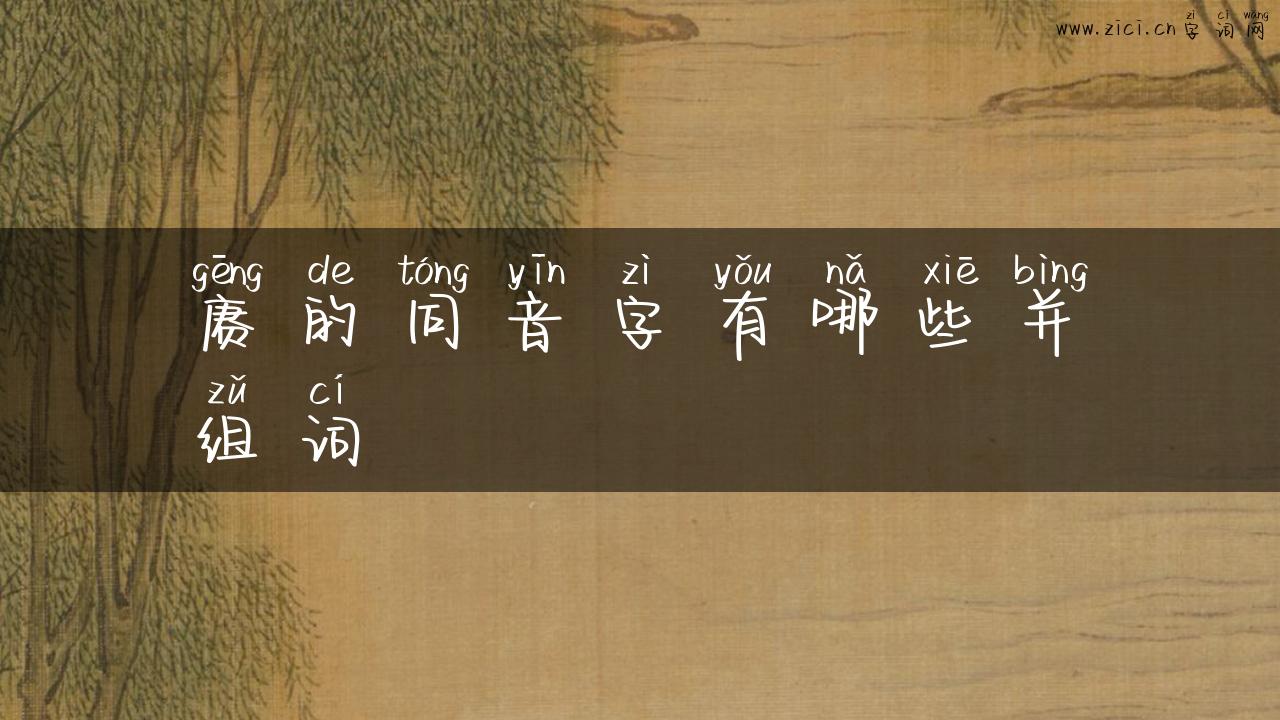 zì cí wǎng
www.zici.cn字词网
gēng de tóng yīn zì yǒu nǎ xiē bìng
赓的同音字有哪些并
zǔ cí
组词